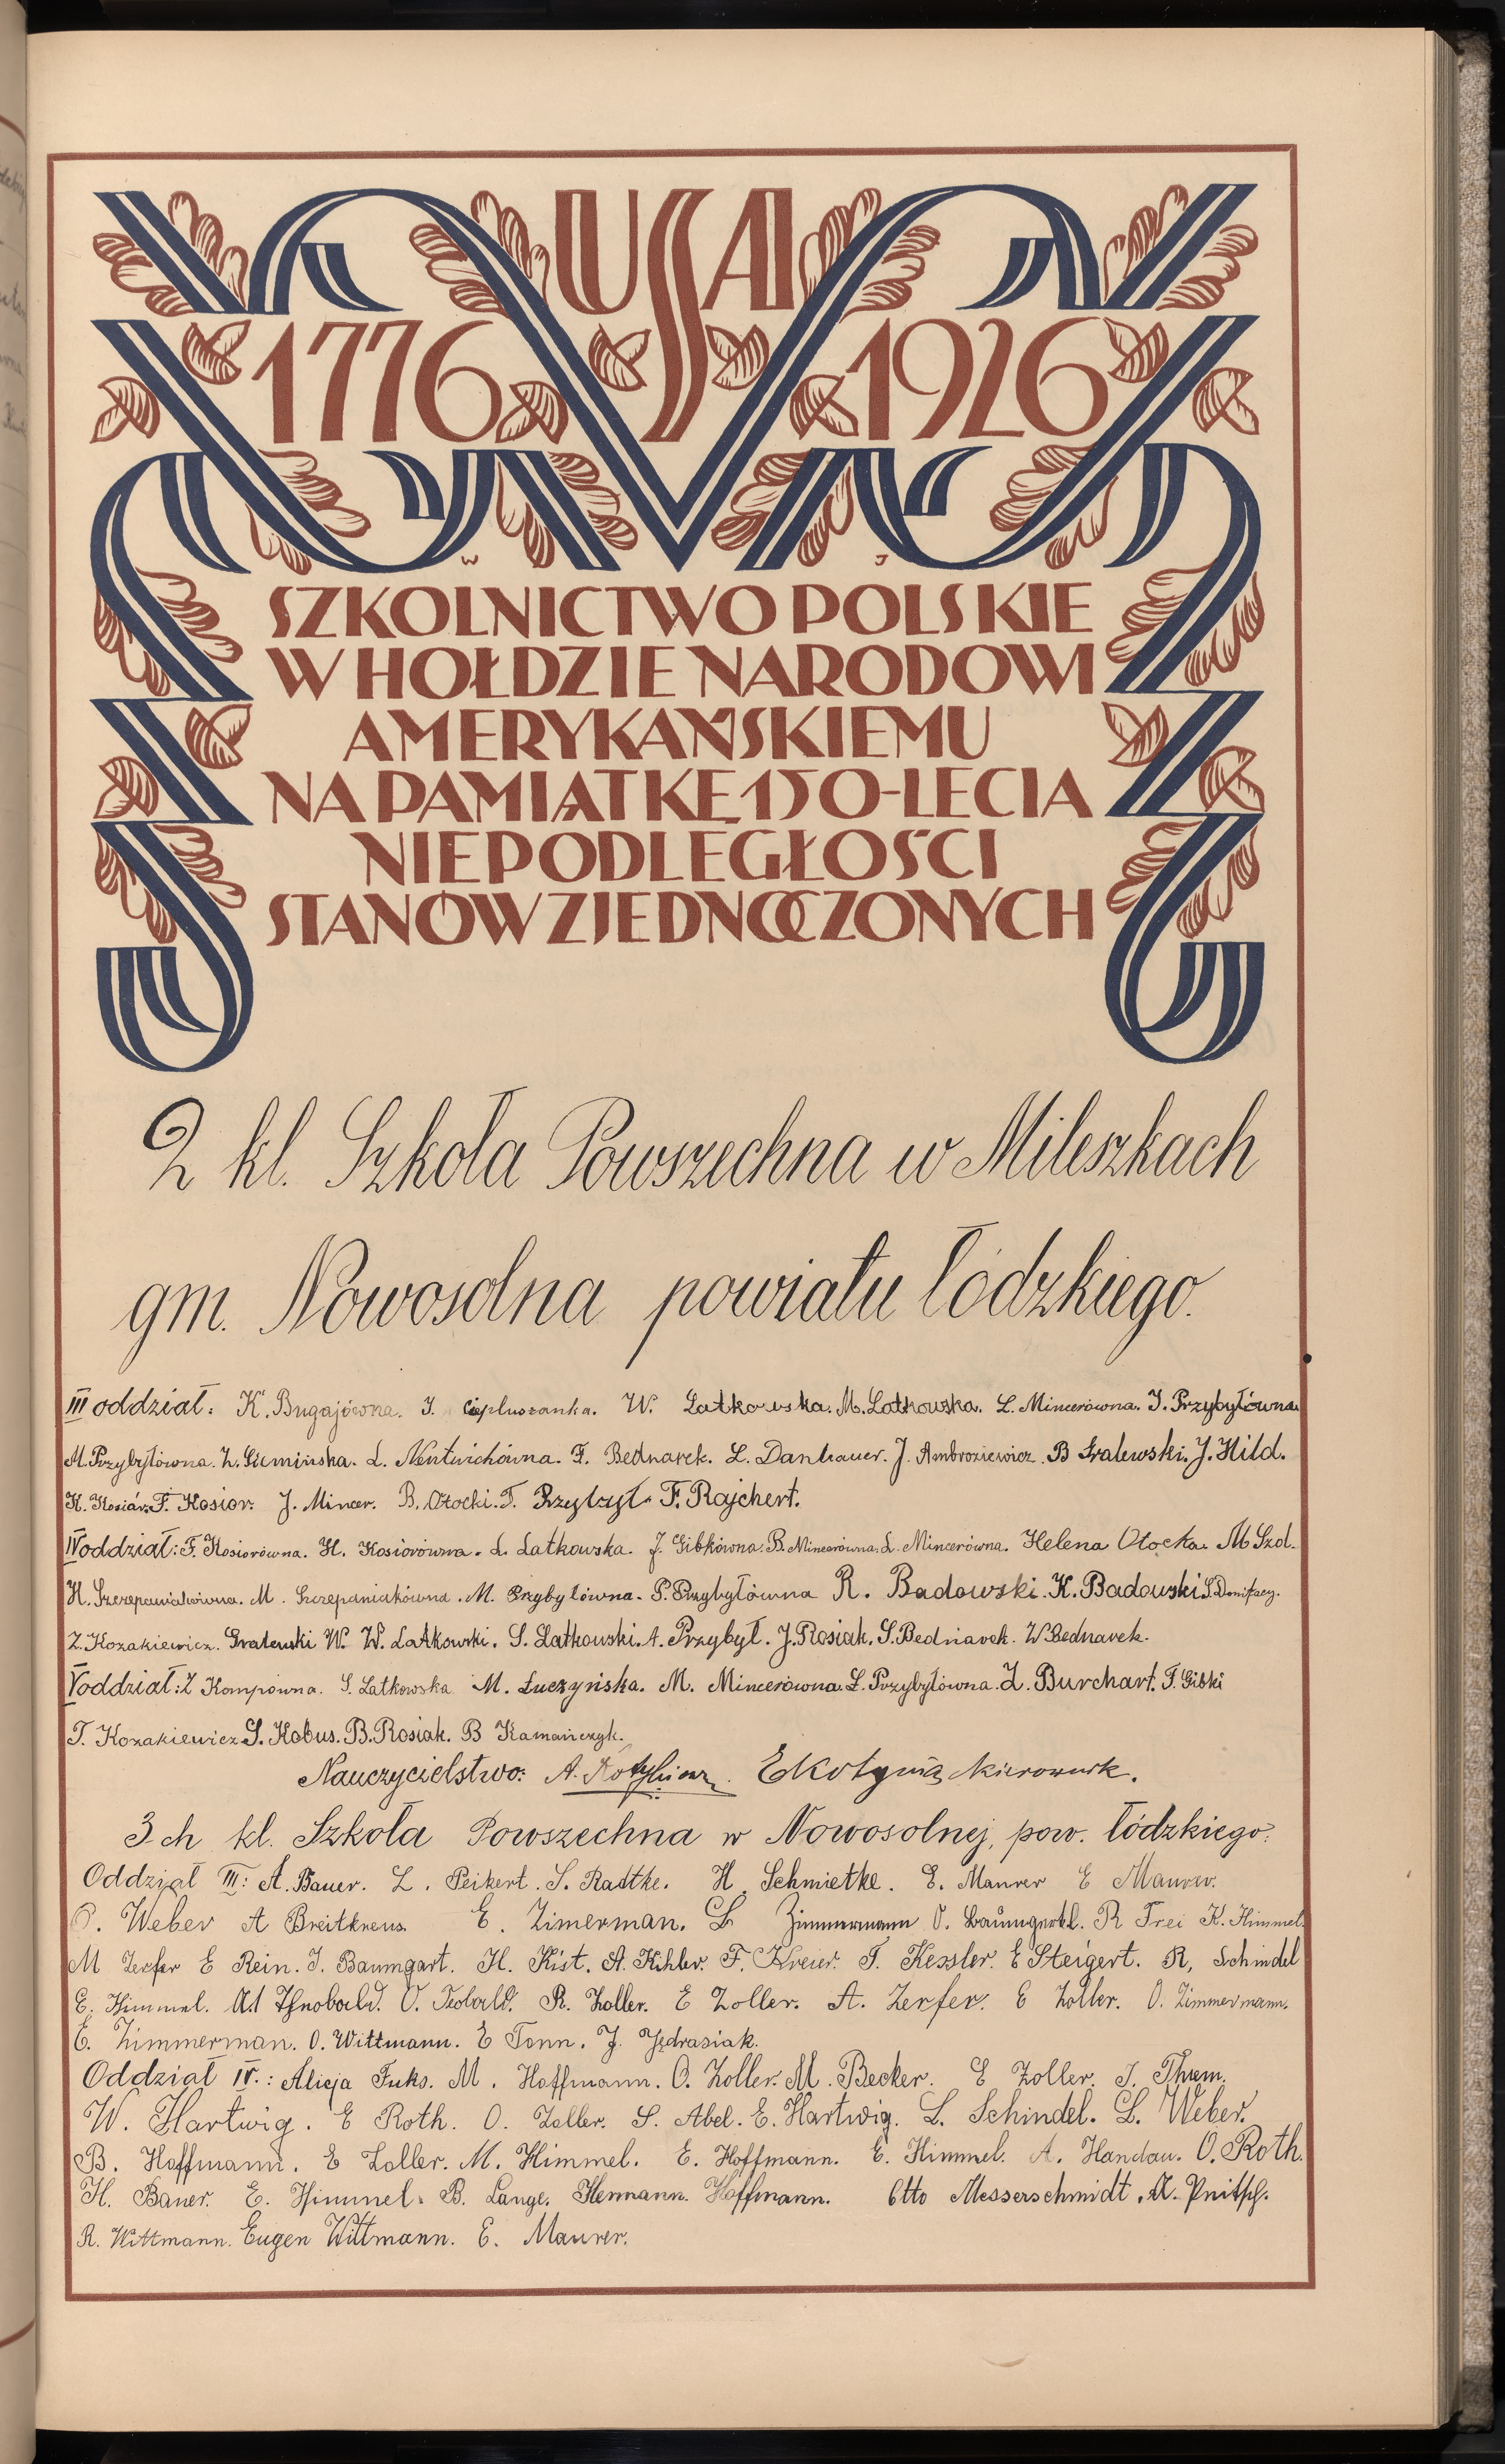 USA
1776 1926
W J
SZKOLNICTWO POLSKIE
W HOŁDZIE NARODOWI
AMERYKAŃSKIEMU
NA PAMIĄTKĘ 150-LECIA
NIEPODLEGŁOŚCI
STANÓW ZJEDNOCZONYCH
2 kl. Szkoła Powszechna w Mileszkach
gm. Nowosolna powiatu łódzkiego.
III oddział: K. Bugajówna. J. Ciepluszanka. W. Latkowska. M. Latkowska. L. Mincerówna. J. Przybyłówna
M. Przybyłówna. L. Nentwichówna. F. Bednarek. L. Danhauer. J. Ambroziewicz. B Gralewski. J. Hild.
K. Kosiór. F. Kosior. J. Mincer. B. Otocki. T. Przybył. F. Rajchert.
IV oddział: F. Kosiorówna. H. Kosiorówna. L. Latkowska. J. Gibkówna. B. Mincerówna. L. Mincerówna. Helena Otocka. M Szol.
H. Szczepaniakówna. M. Szczepaniakówna. M. Przybyłówna. P. Przybyłówna R. Badowski. K. Badowski. S. Bonifacy.
Z. Kozakiewicz. Gralewski W. W. Latkowski. S. Latkowski. A. Przybył. J. Rosiak. S. Bednarek. W Bednarek.
V oddział: Z Kompówna. S. Latkowska M. Łuczyńska. M. Mincerówna. L. Przybyłówna. Z. Burchart. T. Gibki
T. Kozakiewicz S. Kobus. B. Rosiak. B Kamańczyk.
Nauczycielstwo: A. EKotynia kierownik.
3 ch kl. Szkoła Powszechna w Nowosolnej, pow. łódzkiego.
Oddział III: A. Bauer. L. Peikert. S. Radtke. H. Schmietke. E. Maurer E Maurer.
O. Weber A Breitkreus. E. Zimerman. L Zimmermann O. Baumgertel. R Frei K. Himmel.
M Zerfer E Rein. J. Baumgart. H. Kist. A. Kihler. F. Kreier. T. Kessler. E Steigert. R, Schindel
E. Himmel. O. Teobald. R. Zoller. E Zoller. A. Zerfer. E Zoller. O. Zimmermann.
E. Zimmerman. O. Wittmann. E Tonn. J. Jędrasiak.
Oddział IV.: Alicja Fuks. M. Hoffmann. O. Zoller. M. Becker. E Zoller. J. Threm.
W. Hartwig. E Roth. O. Zoller. S. Abel. E. Hartwig. L. Schindel. L. Weber.
B. Hoffmann. E Zoller. M. Himmel. E. Hoffmann. E. Himmel. A. Handau. O. Roth.
H. Bauer. E. Himmel. B. Lange. Hermann. Hoffmann. Otto Messerschmidt.
R. Wittmann. Eugen Wittmann. E. Maurer.